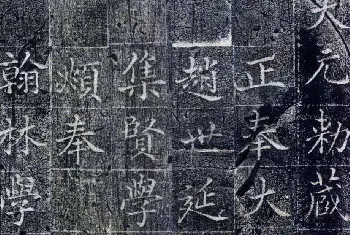 大元勅藏
正奉大
趙世延
集賢學
頫奉
翰林學